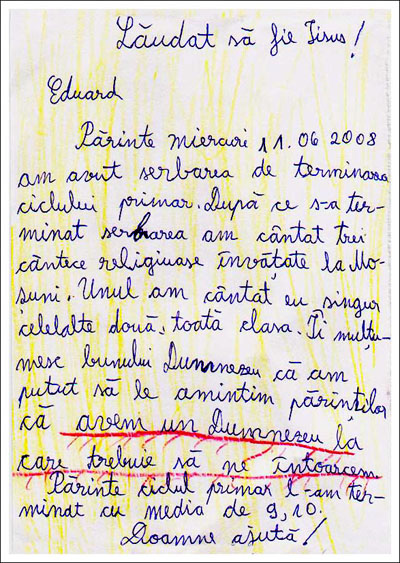 Lăudat să fie Iisus!
Eduard
Părinte miercuri 11.06 2008
am avut serbarea de terminarea
ciclului primar. După ce s-a ter-
minat serbarea am cântat trei
cântece religiuase învățate la Mo-
șuni. Unul am cântat eu singur
celelalte două, toată clasa. Îi mulțu-
mesc bunului Dumnezeu că am
putut să le amintim părinților
că avem un Dumnezeu la
care trebuie să ne întoarcem
Părinte ciclul primar l-am ter-
minat cu media de 9,10.
Doamne ajută!